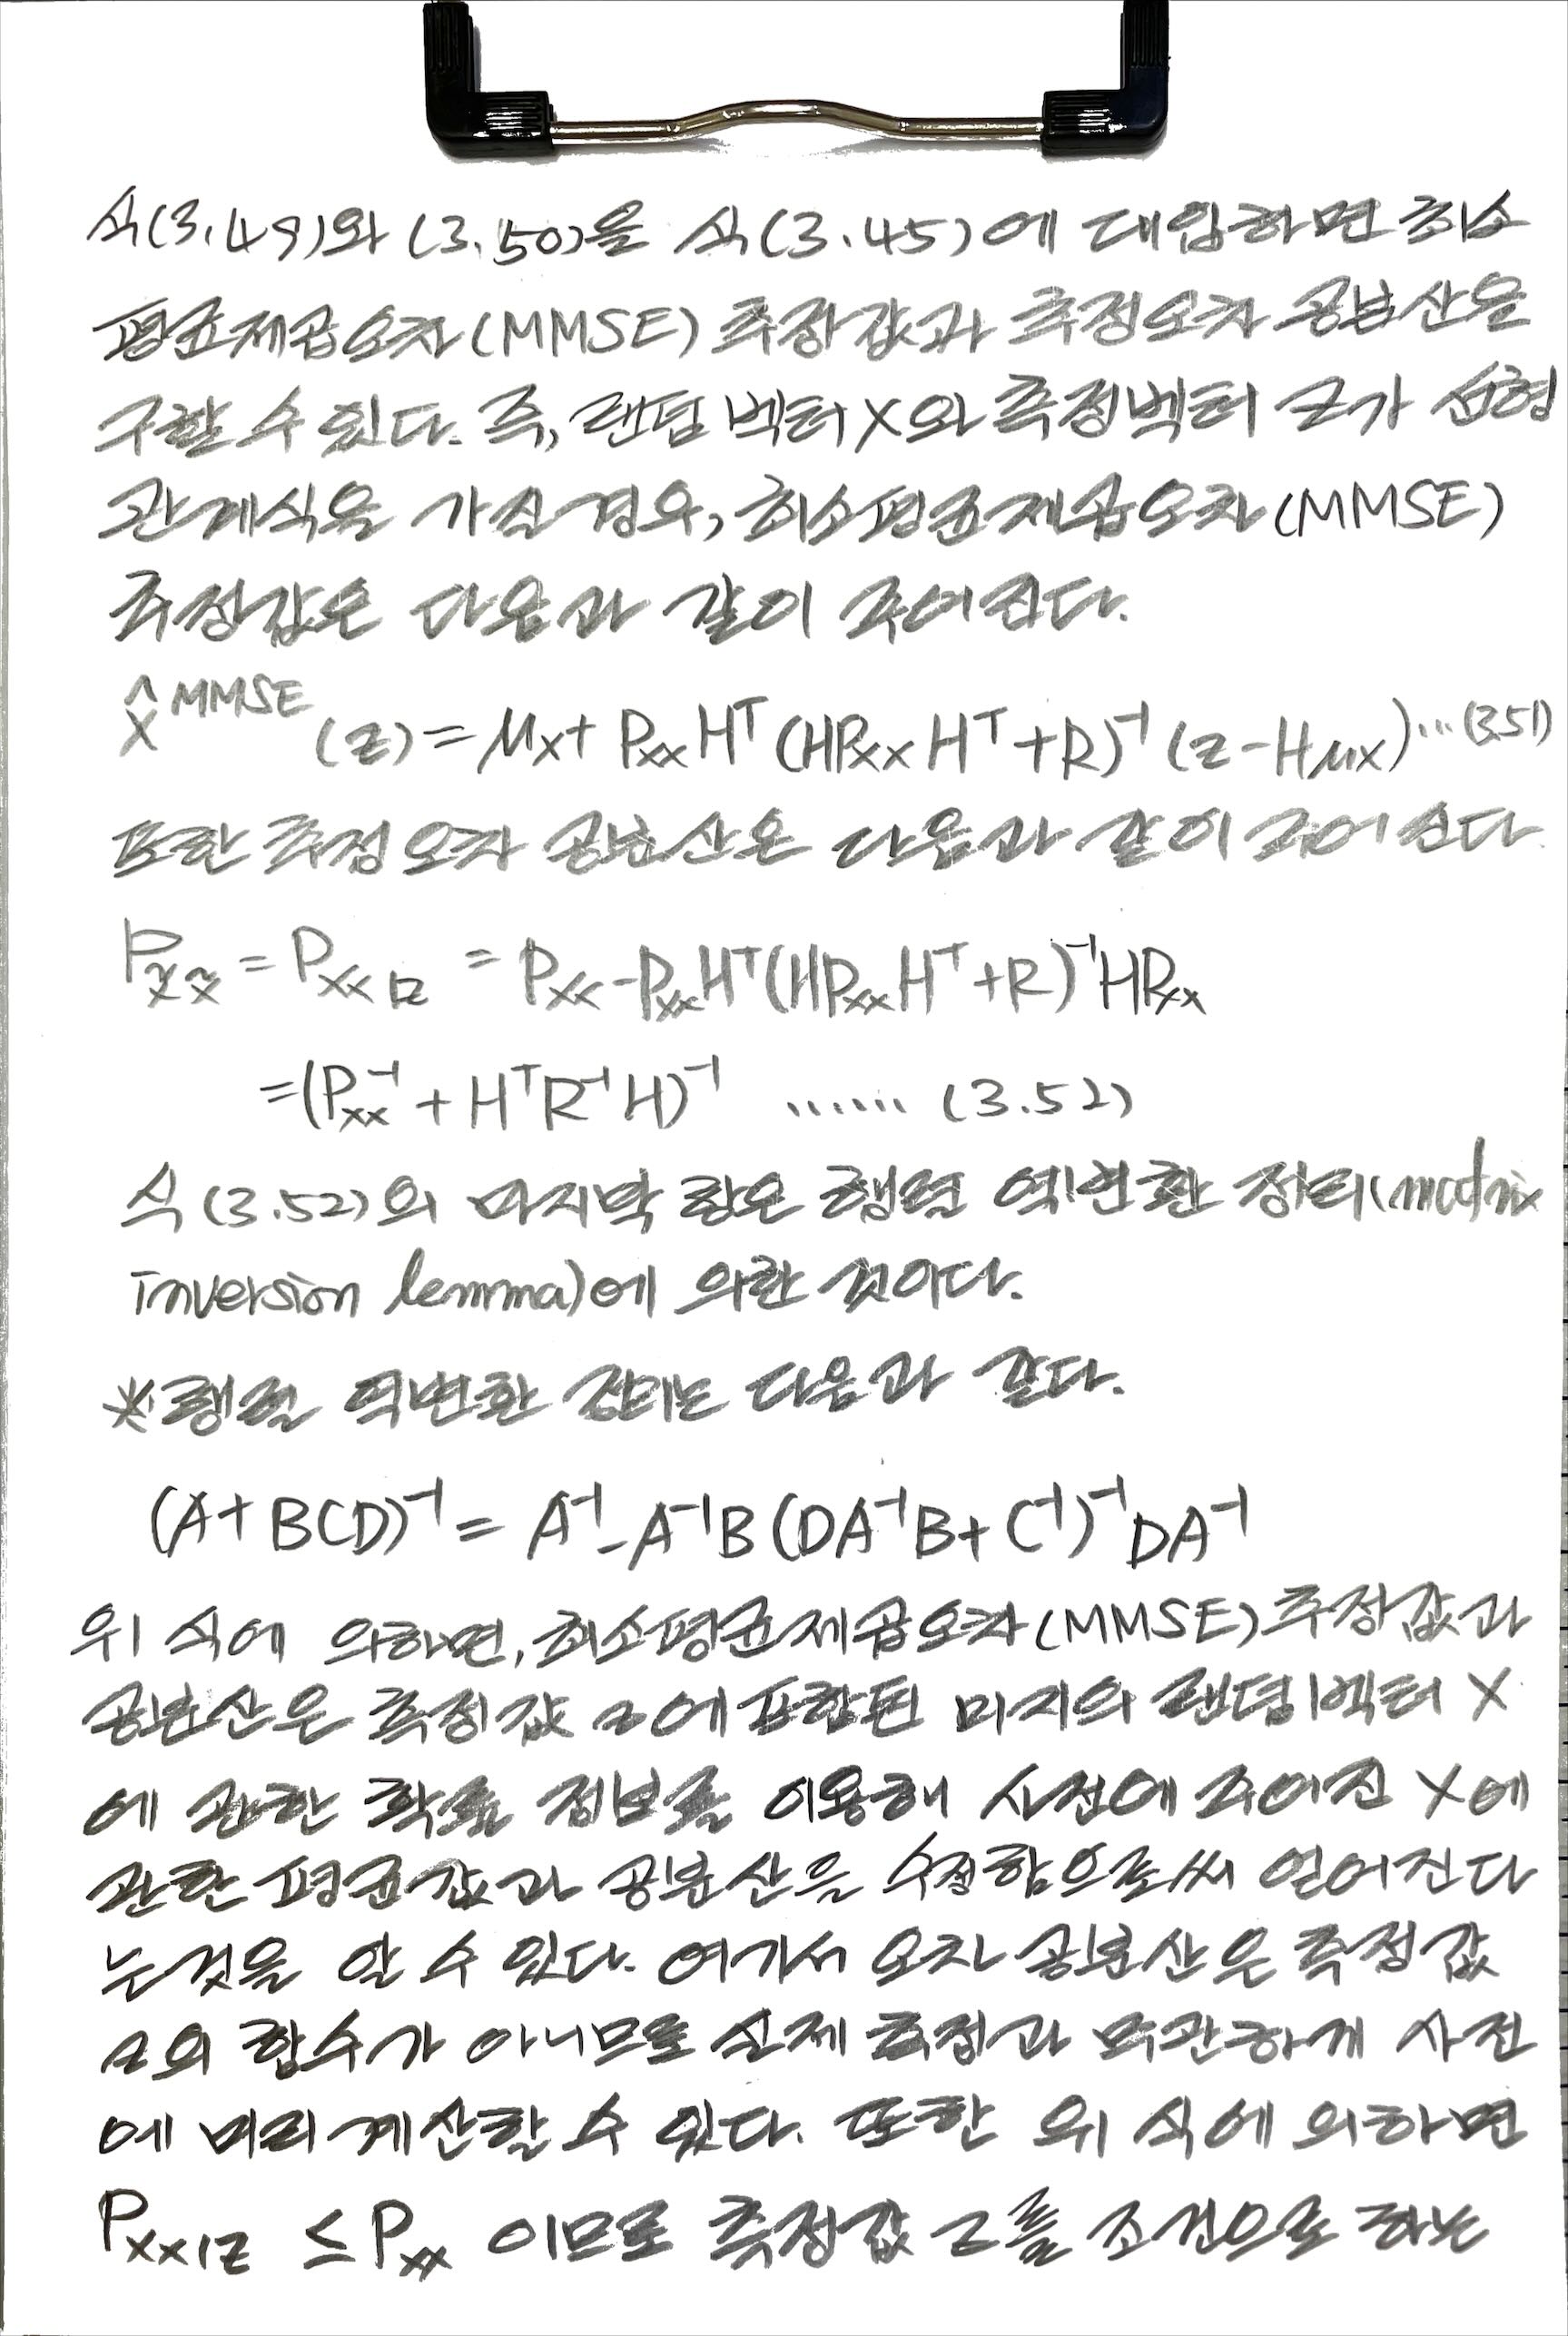 식(3.49)와 (3.50)을 식(3.45)에 대입하면 최소
평균제곱오차(MMSE) 추정값과 추정오차 공분산을
구할 수 있다. 즉, 랜덤 벡터 X와 측정벡터 Z가 선형
관계식을 가질 경우, 최소평균제곱오차(MMSE)
추정값은 다음과 같이 주어진다.
X̂^MMSE (z) = μx + Pxx H^T (HPxx H^T + R)^-1 (z - Hμx) ... (3.51)
또한 추정오차 공분산은 다음과 같이 주어진다.
Px̃x̃ = Pxx|z = Pxx - Pxx H^T (HPxx H^T + R)^-1 HPxx
= (Pxx^-1 + H^T R^-1 H)^-1 ...... (3.52)
식 (3.52)의 마지막 항은 행렬 역변환 정리(matrix
inversion lemma)에 의한 것이다.
*행렬 역변환 정리는 다음과 같다.
(A + BCD)^-1 = A^-1 - A^-1 B (DA^-1 B + C^-1)^-1 DA^-1
위 식에 의하면, 최소평균제곱오차(MMSE) 추정값과
공분산은 측정값 z에 포함된 미지의 랜덤벡터 X
에 관한 확률 정보를 이용해 사전에 주어진 X에
관한 평균값과 공분산을 수정함으로써 얻어진다
는것을 알 수 있다. 여기서 오차 공분산은 측정값
z의 함수가 아니므로 실제 측정과 무관하게 사전
에 미리 계산할 수 있다. 또한 위 식에 의하면
Pxx|z ≤ Pxx 이므로 측정값 z를 조건으로 하는